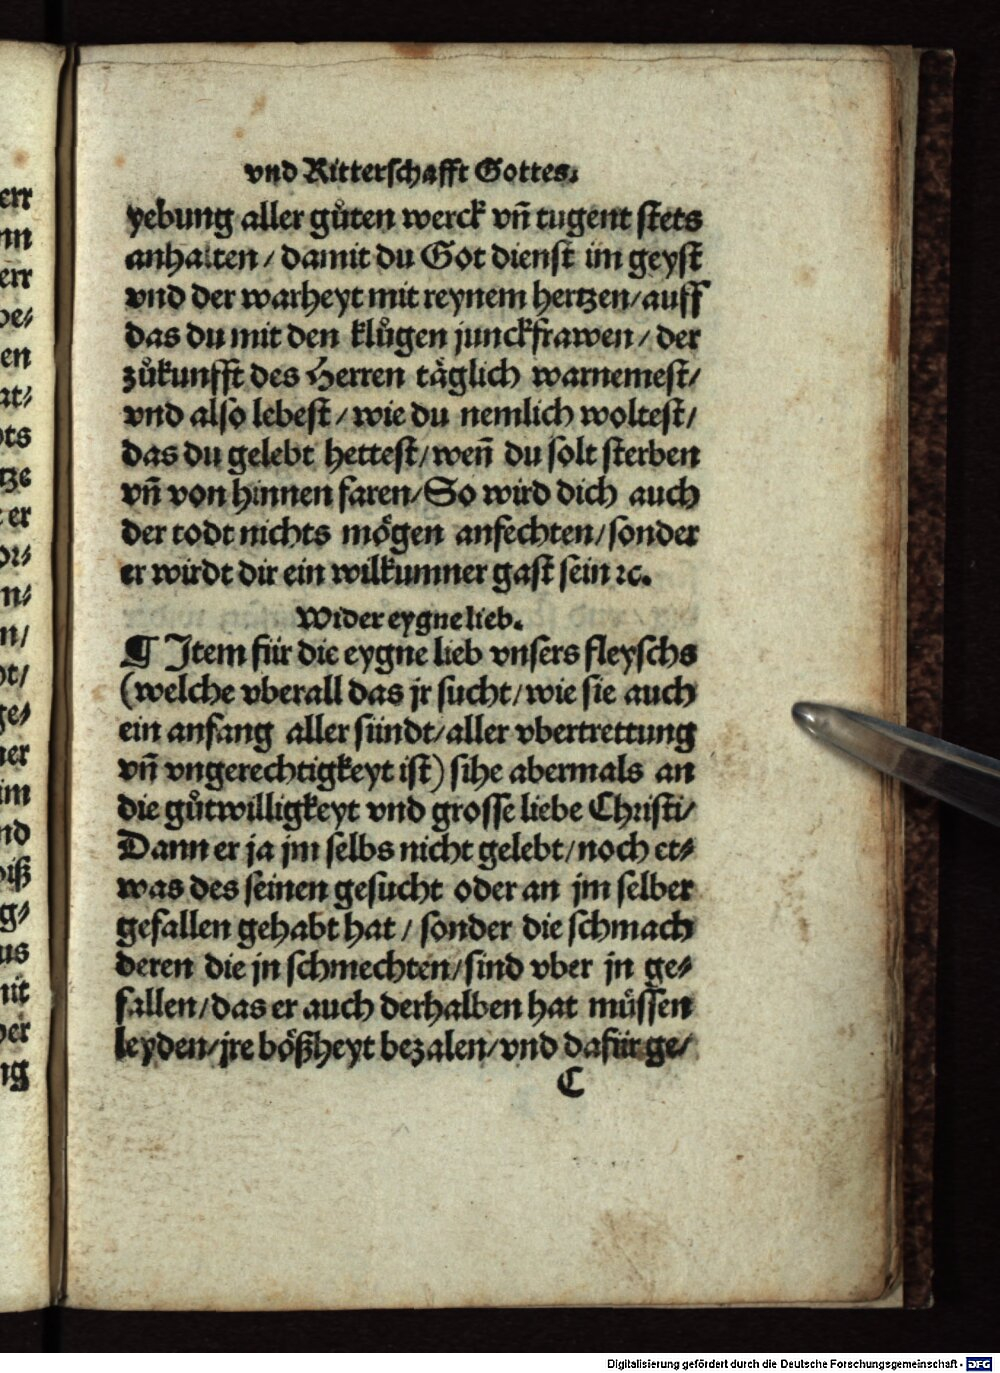 vnd Ritterschafft Gottes.
yebung aller gůten werck vñ tugent stets
anhalten / damit du Got dienst im geyst
vnd der warheyt mit reynem hertzen/auff
das du mit den klůgen junckfrawen / der
zůkunfft des Herren täglich warnemest/
vnd also lebest / wie du nemlich woltest/
das du gelebt hettest/weñ du solt sterben
vñ von hinnen faren/So wird dich auch
der todt nichts mögen anfechten/sonder
er wirdt dir ein wilkumner gast sein ꝛc.
Wider eygne lieb.
¶ Item für die eygne lieb vnsers fleyschs
(welche vberall das jr sucht/wie sie auch
ein anfang aller sündt/aller vbertrettung
vñ vngerechtigkeyt ist) sihe abermals an
die gůtwilligkeyt vnd grosse liebe Christi/
Dann er ja jm selbs nicht gelebt/noch et⸗
was des seinen gesucht oder an jm selber
gefallen gehabt hat / sonder die schmach
deren die jn schmechten/sind vber jn ge⸗
fallen/das er auch derhalben hat müssen
leyden/jre bößheyt bezalen/vnd dafür ge/
C
err
nn
err
be⸗
en
at⸗
ots
tze
er
or⸗
n⸗
n/
ot/
ge⸗
ner
im
nd
biß
g⸗
us
nit
ber
ng
Digitalisierung gefördert durch die Deutsche Forschungsgemeinschaft - DFG